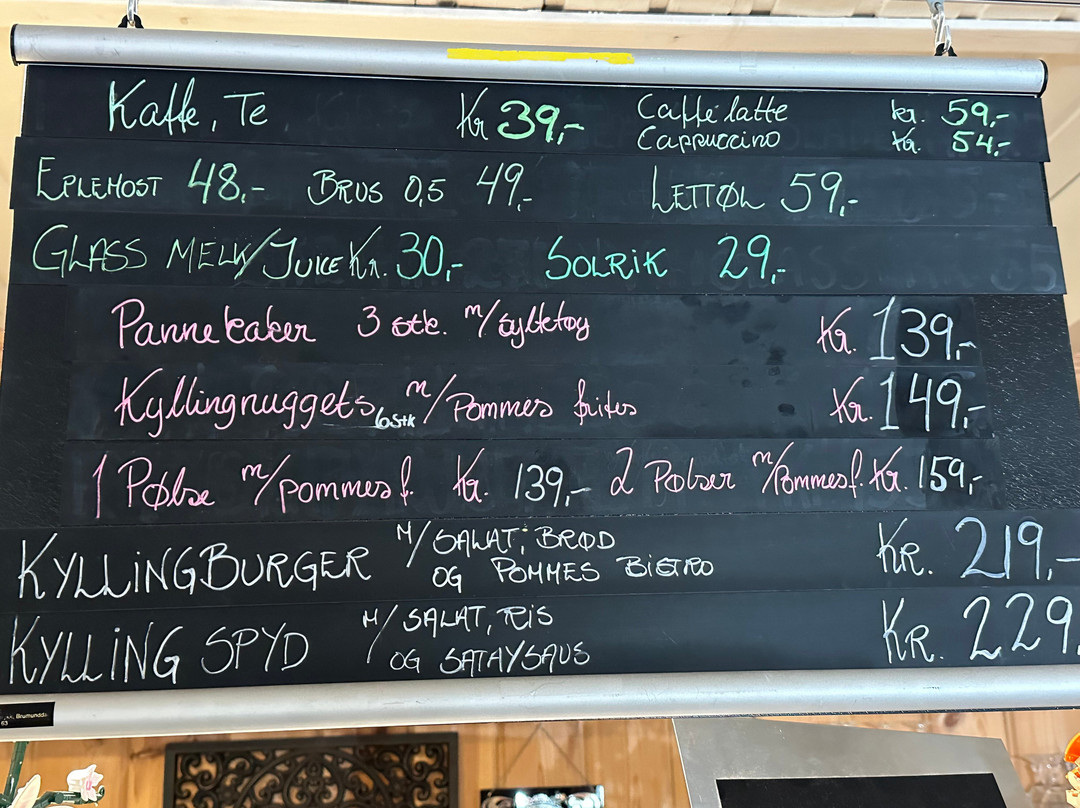 Kaffe, Te Kr 39,- Caffé latte kr. 59,-
Cappuccino Kr. 54,-
EPLEMOST 48,- BRUS 0,5 49,- LETTØL 59,-
GLASS MELK/JUICE Kr. 30,- SOLRIK 29,-
Pannekaker 3 stk. m/syltetøy Kr. 139,-
Kyllingnuggets 6stk m/Pommes frites Kr. 149,-
1 Pølse m/pommes f. Kr. 139,- 2 Pølser m/Pommes f. Kr. 159,-
KYLLINGBURGER M/SALAT, BRØD KR. 219,-
OG POMMES BISTRO
KYLLING SPYD M/SALAT, RIS KR. 229,
OG SATAYSAUS
Brumundda
63